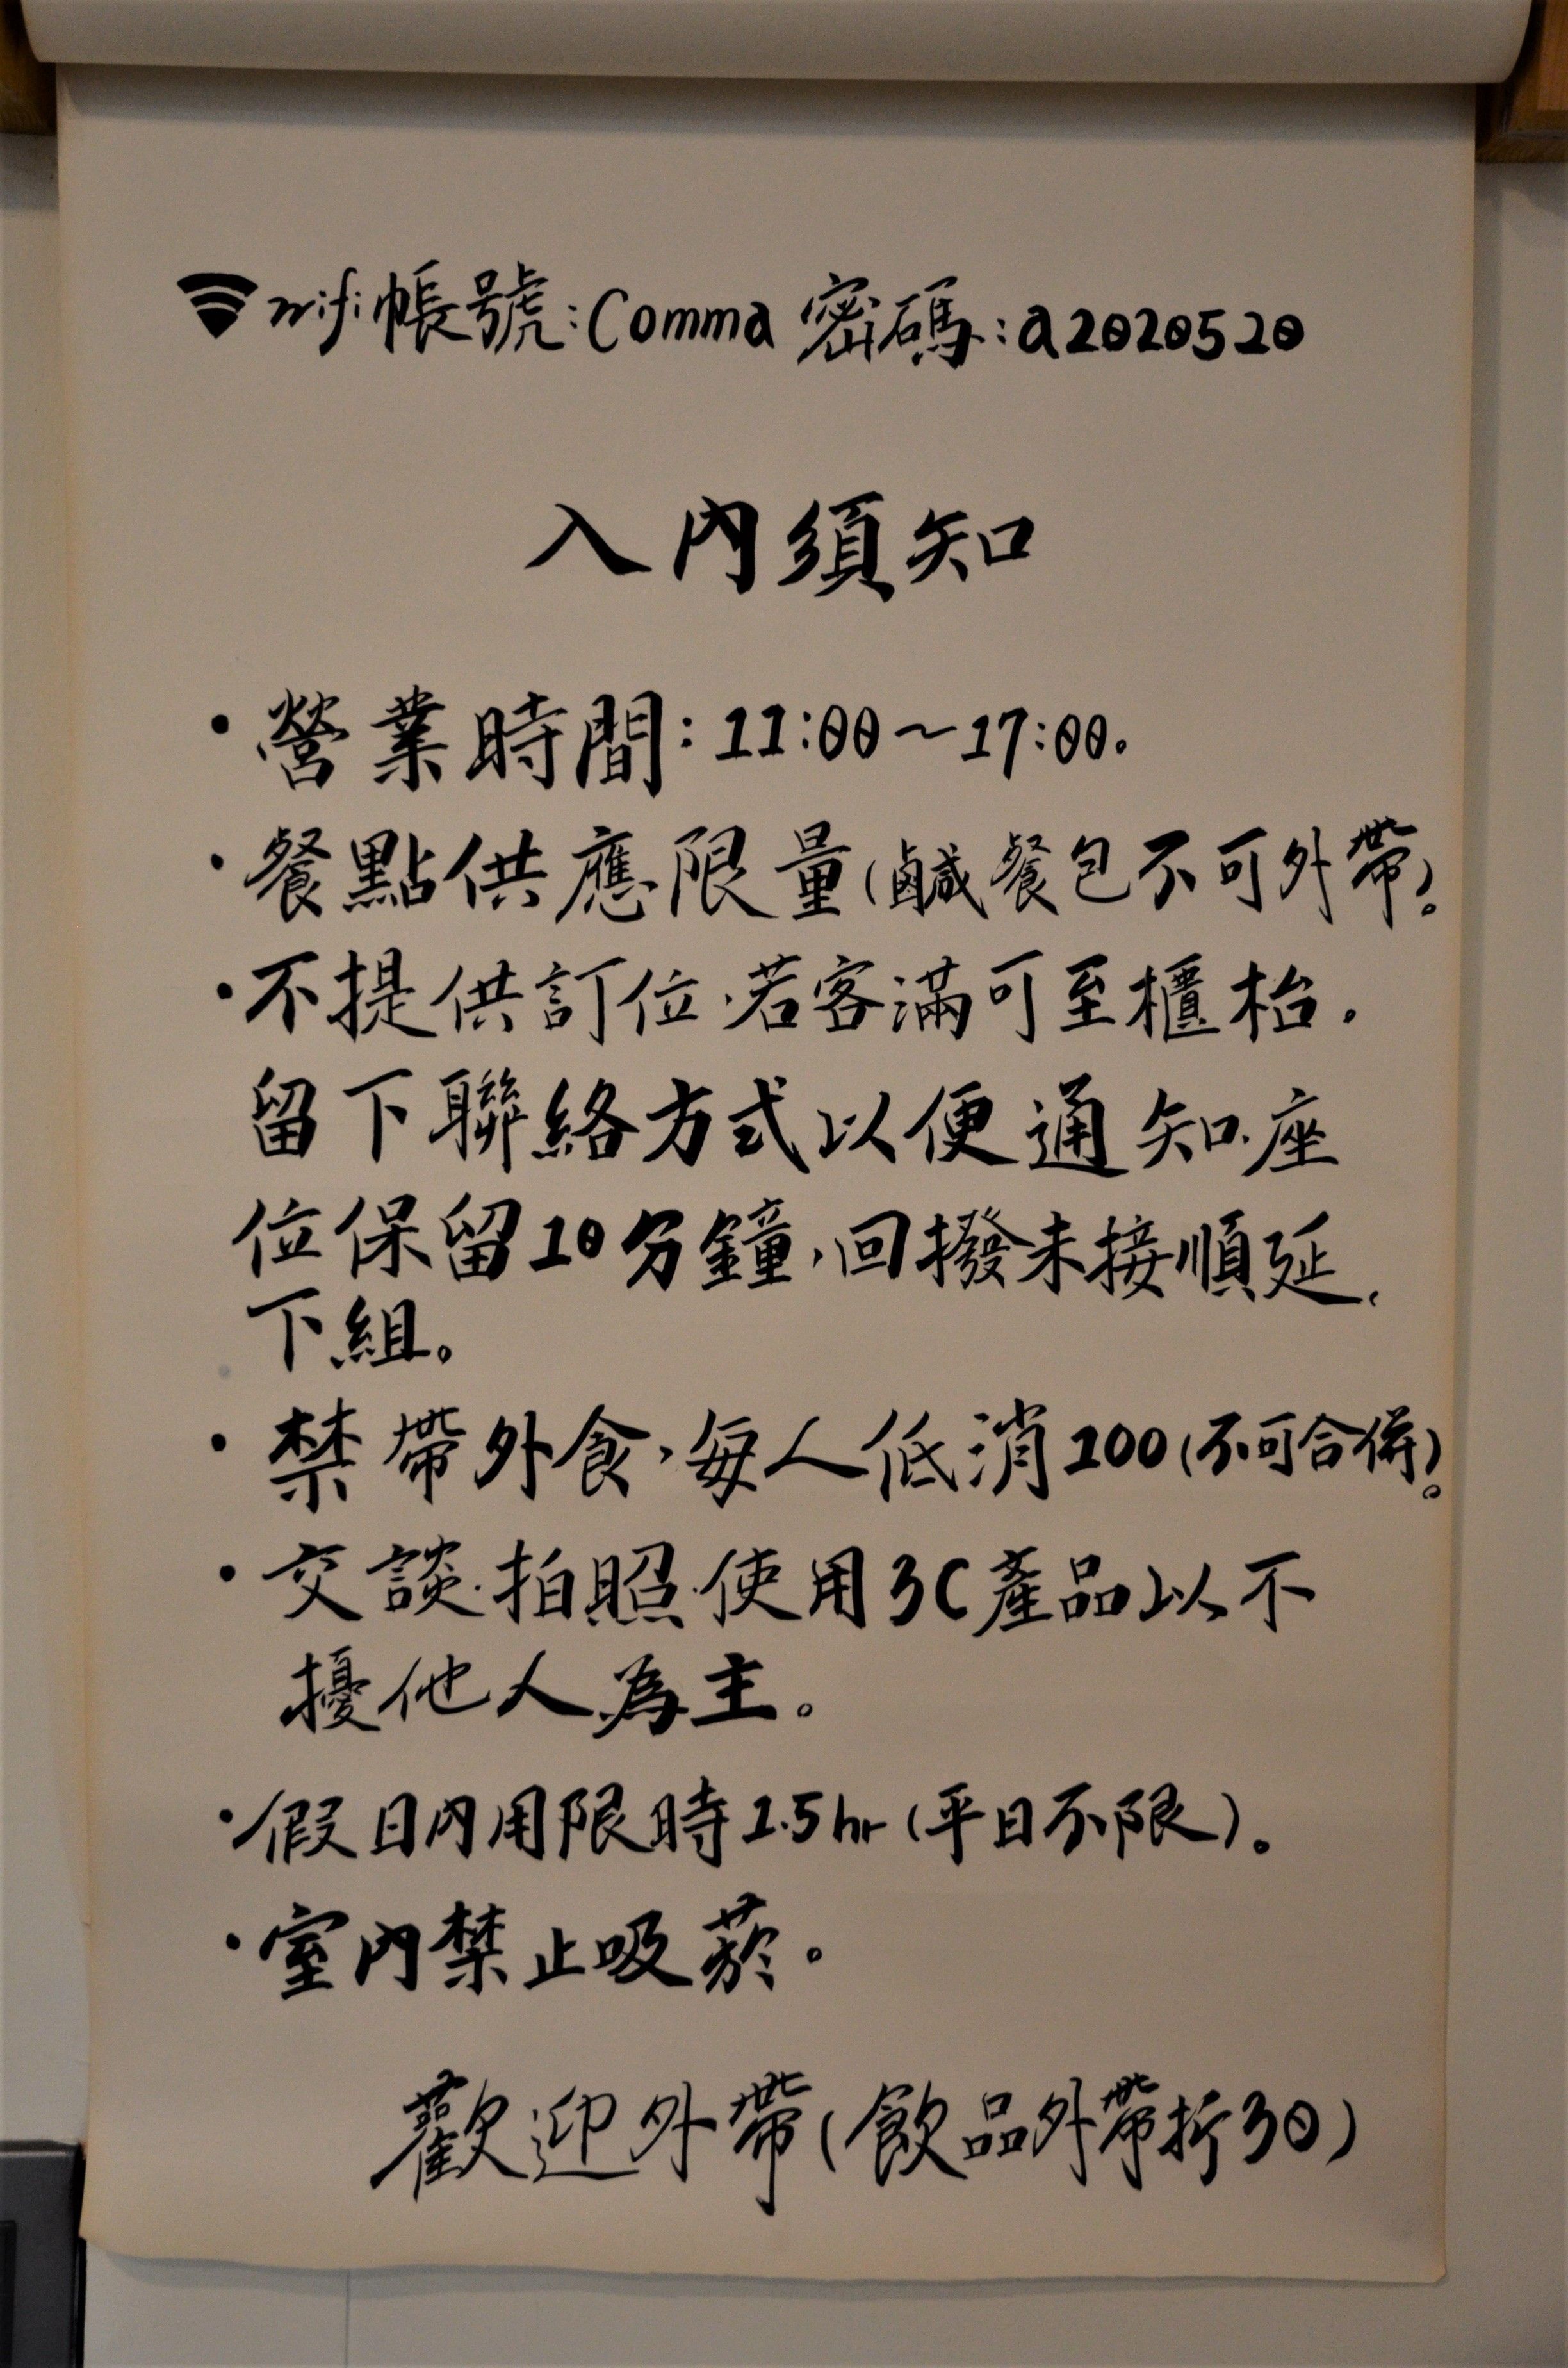 wifi帳號:Comma 密碼:a2020520
入內須知
・營業時間:11:00~17:00。
・餐點供應限量(鹹餐包不可外帶)。
・不提供訂位,若客滿可至櫃枱,
留下聯絡方式以便通知,座
位保留10分鐘,回撥未接順延,
下組。
・禁帶外食,每人低消100(不可合併)。
・交談、拍照、使用3C產品以不
擾他人為主。
・假日內用限時1.5hr(平日不限)。
・室內禁止吸菸。
歡迎外帶(飲品外帶折30)